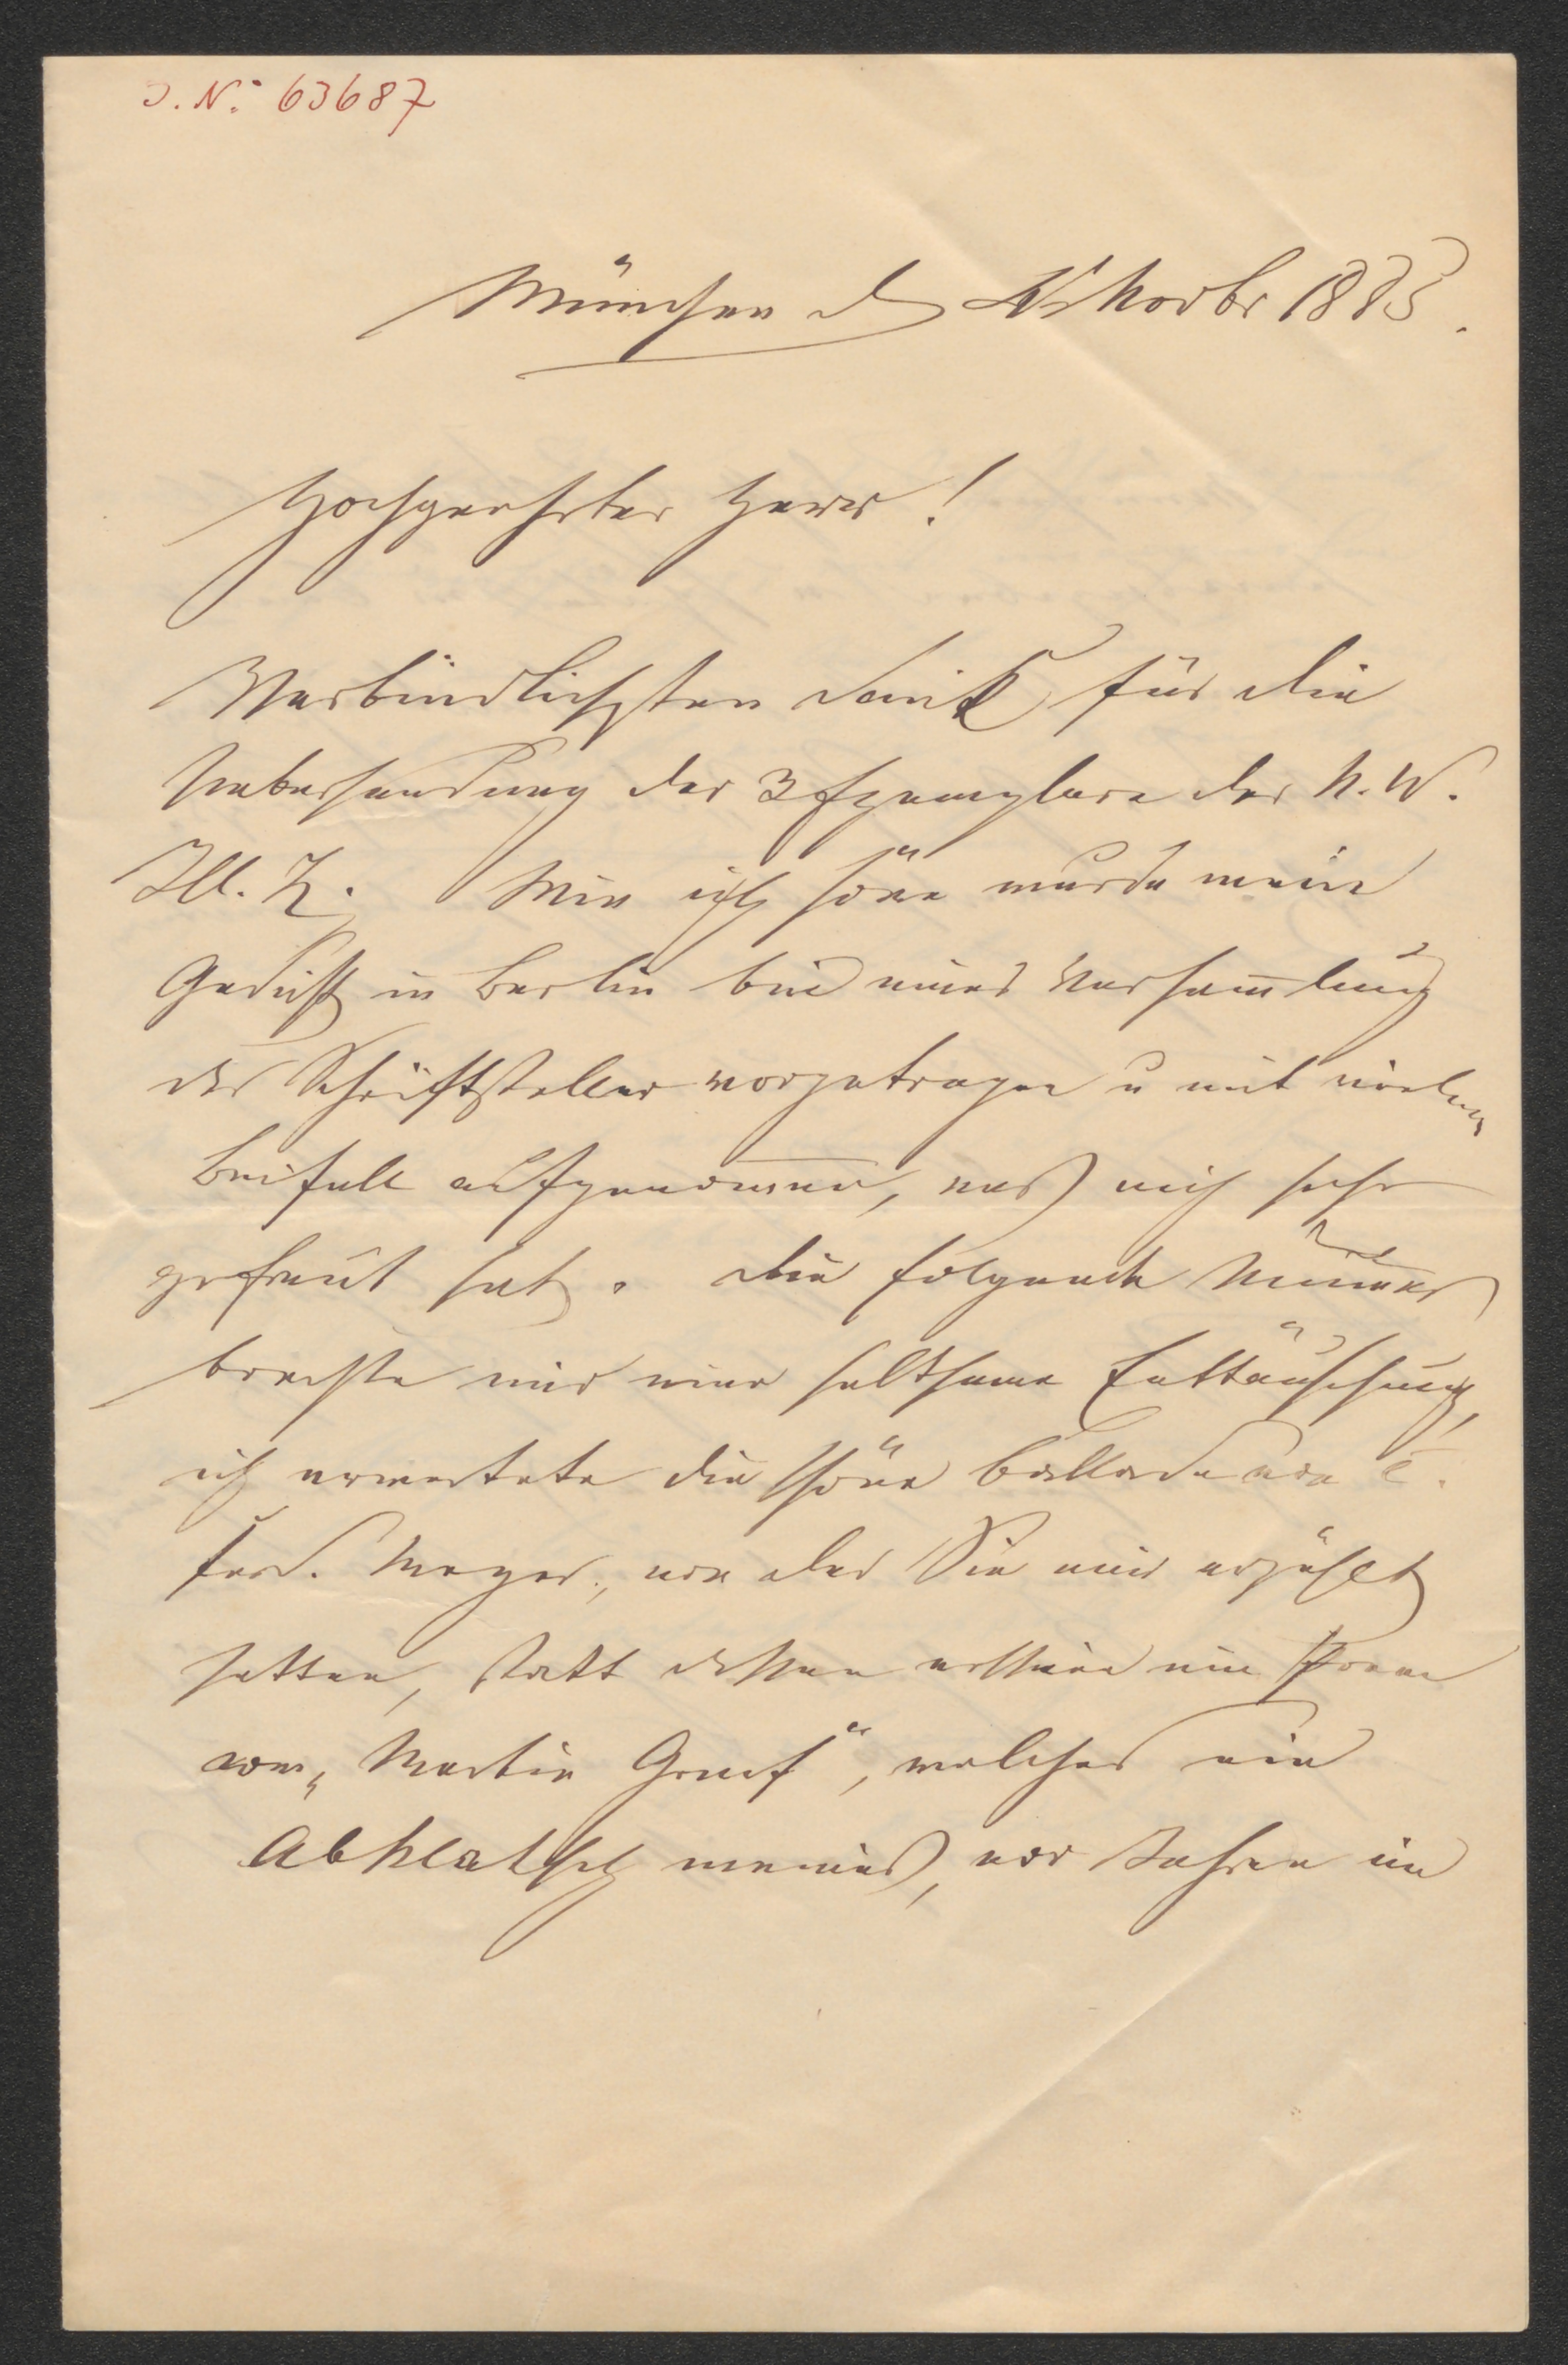 J. N: 63687
München d Novbr 1885.
Hochgeehrter Herr!
Verbindlichsten Dank für die
Uebersendung der 3 Exemplare der N. W.
Ill. Z. Wie ich höre wurde mein
Gedicht in Berlin bei einer Versam̅lung
der Schriftsteller vorgetragen u mit vielem
Beifall aufgenom̅en, was mich sehr
gefreut hat. Die folgende Num̅er
brachte mir eine seltsame Enttäuschung,
ich erwartete die schöne Ballade von C.
Ferd. Meyer, von der Sie mir erzählt
hatten, statt dessen erschien ein Poem
von „Martin Greif“, welches ein
Abklatsch meines, vor Jahren im